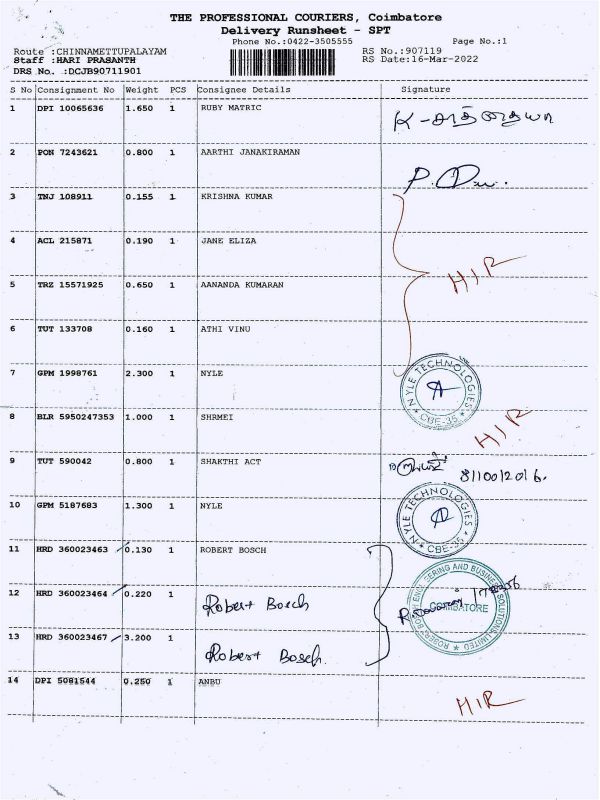 THE PROFESSIONAL COURIERS, Coimbatore
Delivery Runsheet - SPT
Phone No.:0422-3505555 Page No.:1
Route :CHINNAMETTUPALAYAM RS No.:907119
Staff :HARI PRASANTH RS Date:16-Mar-2022
DRS No. :DCJB90711901
S No Consignment No Weight PCS Consignee Details Signature
1 DPI 10065636 1.650 1 RUBY MATRIC
2 PON 7243621 0.800 1 AARTHI JANAKIRAMAN
3 TNJ 108911 0.155 1 KRISHNA KUMAR
4 ACL 215871 0.190 1 JANE ELIZA
HIR
5 TRZ 15571925 0.650 1 AANANDA KUMARAN
6 TUT 133708 0.160 1 ATHI VINU
7 GPM 1998761 2.300 1 NYLE
NYLE TECHNOLOGIES
CBE-35
8 BLR 5950247353 1.000 1 SHRMEI
HIR
9 TUT 590042 0.800 1 SHAKTHI ACT
10 GPM 5187683 1.300 1 NYLE
NYLE TECHNOLOGIES
CBE-35
11 HRD 360023463 0.130 1 ROBERT BOSCH
12 HRD 360023464 0.220 1 Robert Bosch
ROBERT BOSCH ENGINEERING AND BUSINESS SOLUTIONS LIMITED
COIMBATORE
13 HRD 360023467 3.200 1 Robert Bosch.
14 DPI 5081544 0.250 1 ANBU
HIR